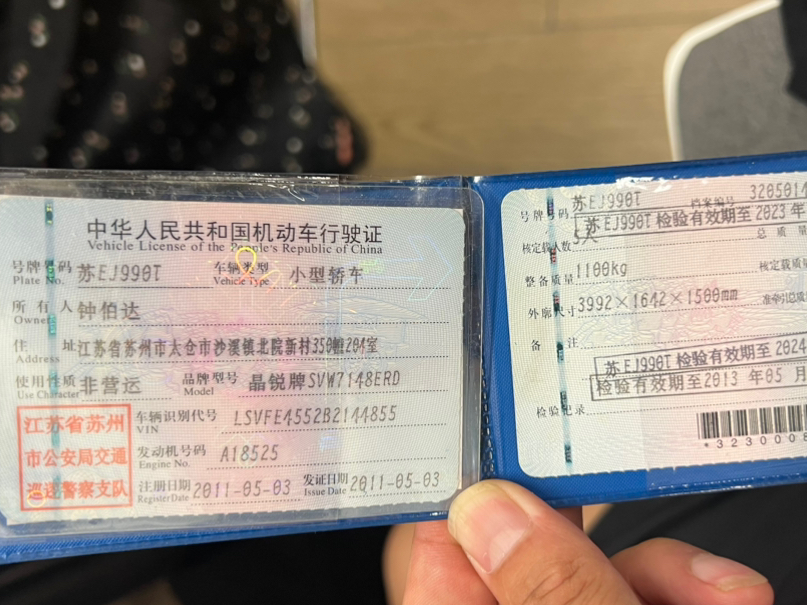 中华人民共和国机动车行驶证
Vehicle License of the People's Republic of China
号牌号码 苏EJ990T 车辆类型 小型轿车
Plate No. Vehicle Type
所有人 钟伯达
Owner
住址 江苏省苏州市太仓市沙溪镇北院新村350幢204室
Address
使用性质 非营运 品牌型号 晶锐牌SVW7148ERD
Use Character Model
江苏省苏州
市公安局交通
巡逻警察支队
车辆识别代号 LSVFE4552B2144855
VIN
发动机号码 A18525
Engine No.
注册日期 2011-05-03 发证日期 2011-05-03
Register Date Issue Date
号牌号码 苏EJ990T 档案编号 3205014
苏EJ990T 检验有效期至 2023 年
核定载人数 5人 总质量
整备质量 1100kg 核定载质量
外廓尺寸 3992×1642×1500mm 准牵引总质
备注
苏EJ990T 检验有效期至 2024
检验有效期至2013 年05 月
检验记录
*3230008